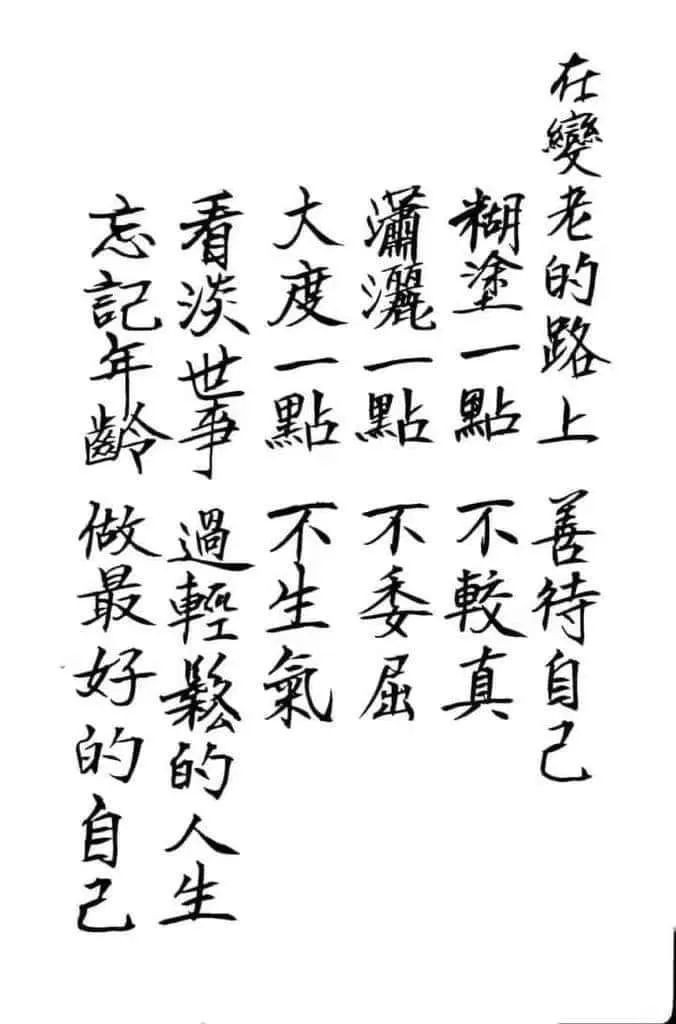 在變老的路上 善待自己
糊塗一點 不較真
瀟灑一點 不委屈
大度一點 不生氣
看淡世事 過輕鬆的人生
忘記年齡 做最好的自己